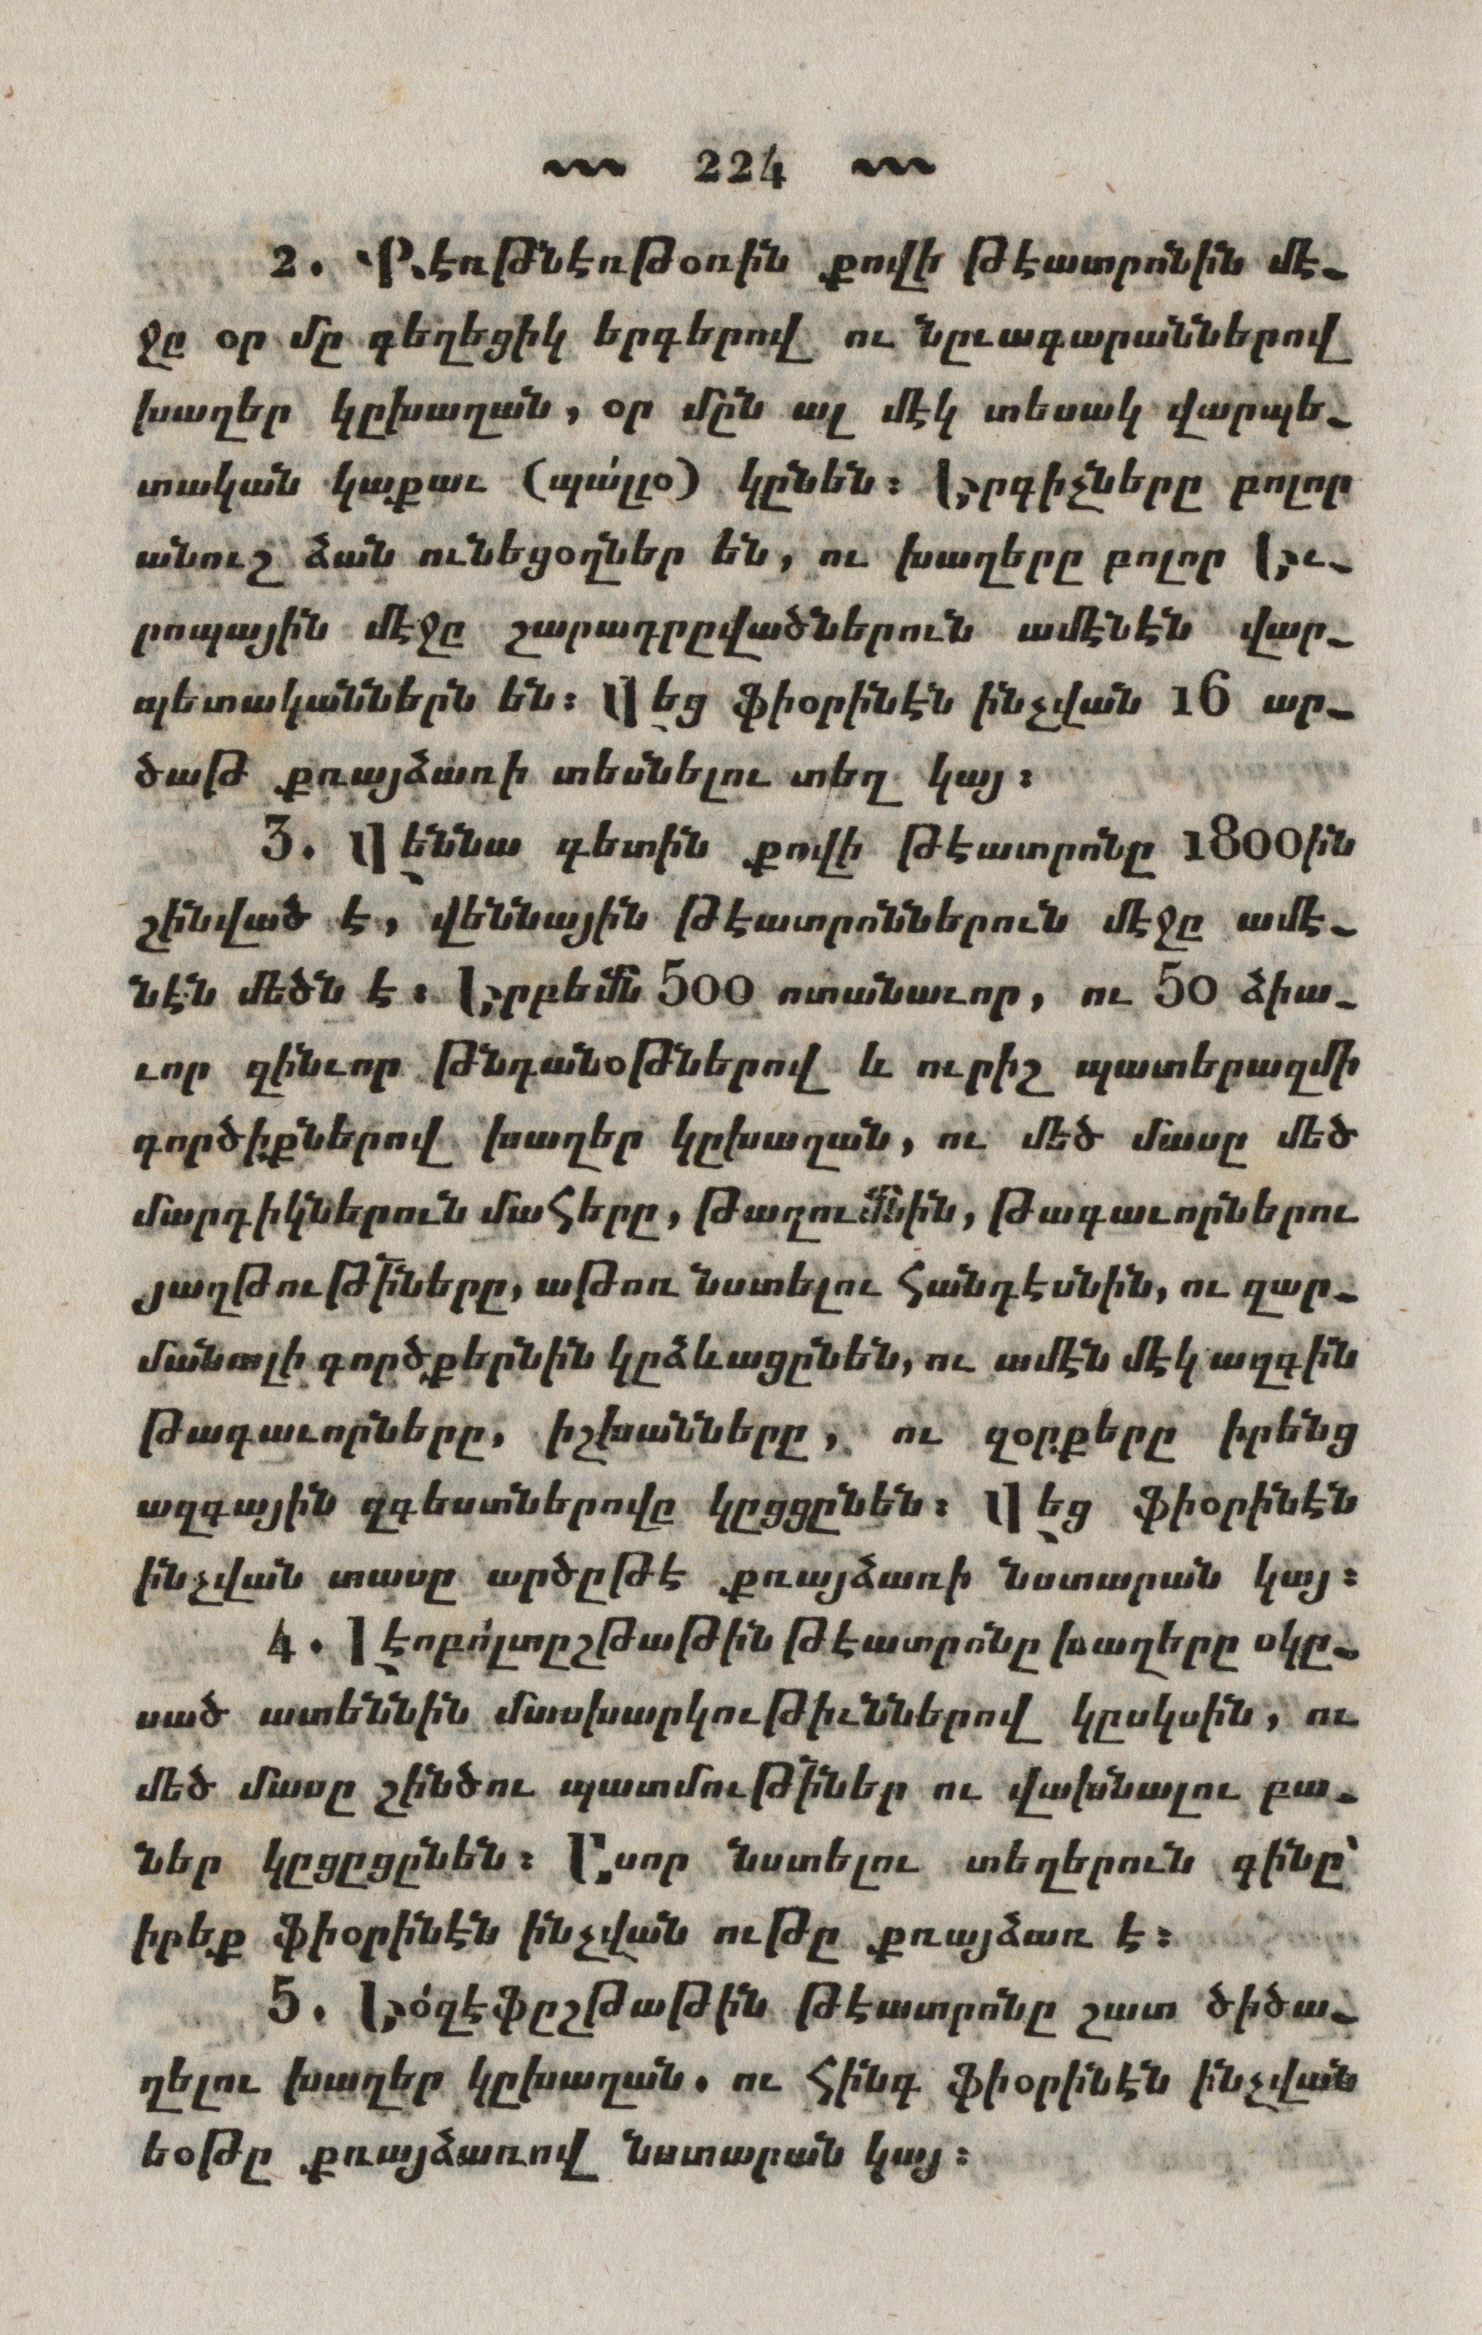 224
2. Քէռթնէռթօռին քովի թէատրոնին մէ֊
ջը օր մը գեղեցիկ երգերով ու նըւագարաններով
խաղեր կըխաղան, օր մըն ալ մէկ տեսակ վարպե֊
տական կաքաւ (պա՛լլօ) կընեն։ Երգիչները բոլոր
անուշ ձան ունեցօղներ են, ու խաղերը բոլոր Եւ֊
րոպային մէջը շարադրըվածներուն ամէնէն վար֊
պետականներն են։ Վեց ֆիօրինէն ինչվան 16 ար֊
ծաթ քռայձառի տեսնելու տեղ կայ։
3. Վեննա գետին քովի թէատրոնը 1800ին
շինված է, վեննային թէատրոններուն մէջը ամէ֊
նէն մեծն է։ Երբեմն 500 ոտանաւոր, ու 50 ձիա֊
ւոր զինւոր թնդանօթներով և ուրիշ պատերազմի
գործիքներով խաղեր կըխաղան, ու մեծ մասը մեծ
մարդիկներուն մահերը, թաղումնին, թագաւորներու
յաղթութիները, աթոռ նստելու հանդէսնին, ու զար֊
մանալի գործքերնին կըձևացընեն, ու ամէն մէկ ազգին
թագաւորները, իշխանները, ու զօրքերը իրենց
ազգային զգեստներովը կըցցընեն։ Վեց ֆիօրինէն
ինչվան տասը արծըթէ քռայձառի նստարան կայ։
4. Լէոբո՛լտըշթաթին թէատրոնը խաղերը սկը֊
սած ատեննին մասխարկութիւններով կըսկսին, ու
մեծ մասը շինծու պատմութիներ ու վախնալու բա֊
ներ կըցըցընեն։ Ըսոր նստելու տեղերուն գինը՝
իրեք ֆիօրինէն ինչվան ութը քռայձառ է։
5. Եօ՛զէֆըշթաթին թէատրոնը շատ ծիծա֊
ղելու խաղեր կըխաղան. ու հինգ ֆիօրինէն ինչվան
եօթը քռայձառով նստարան կայ։